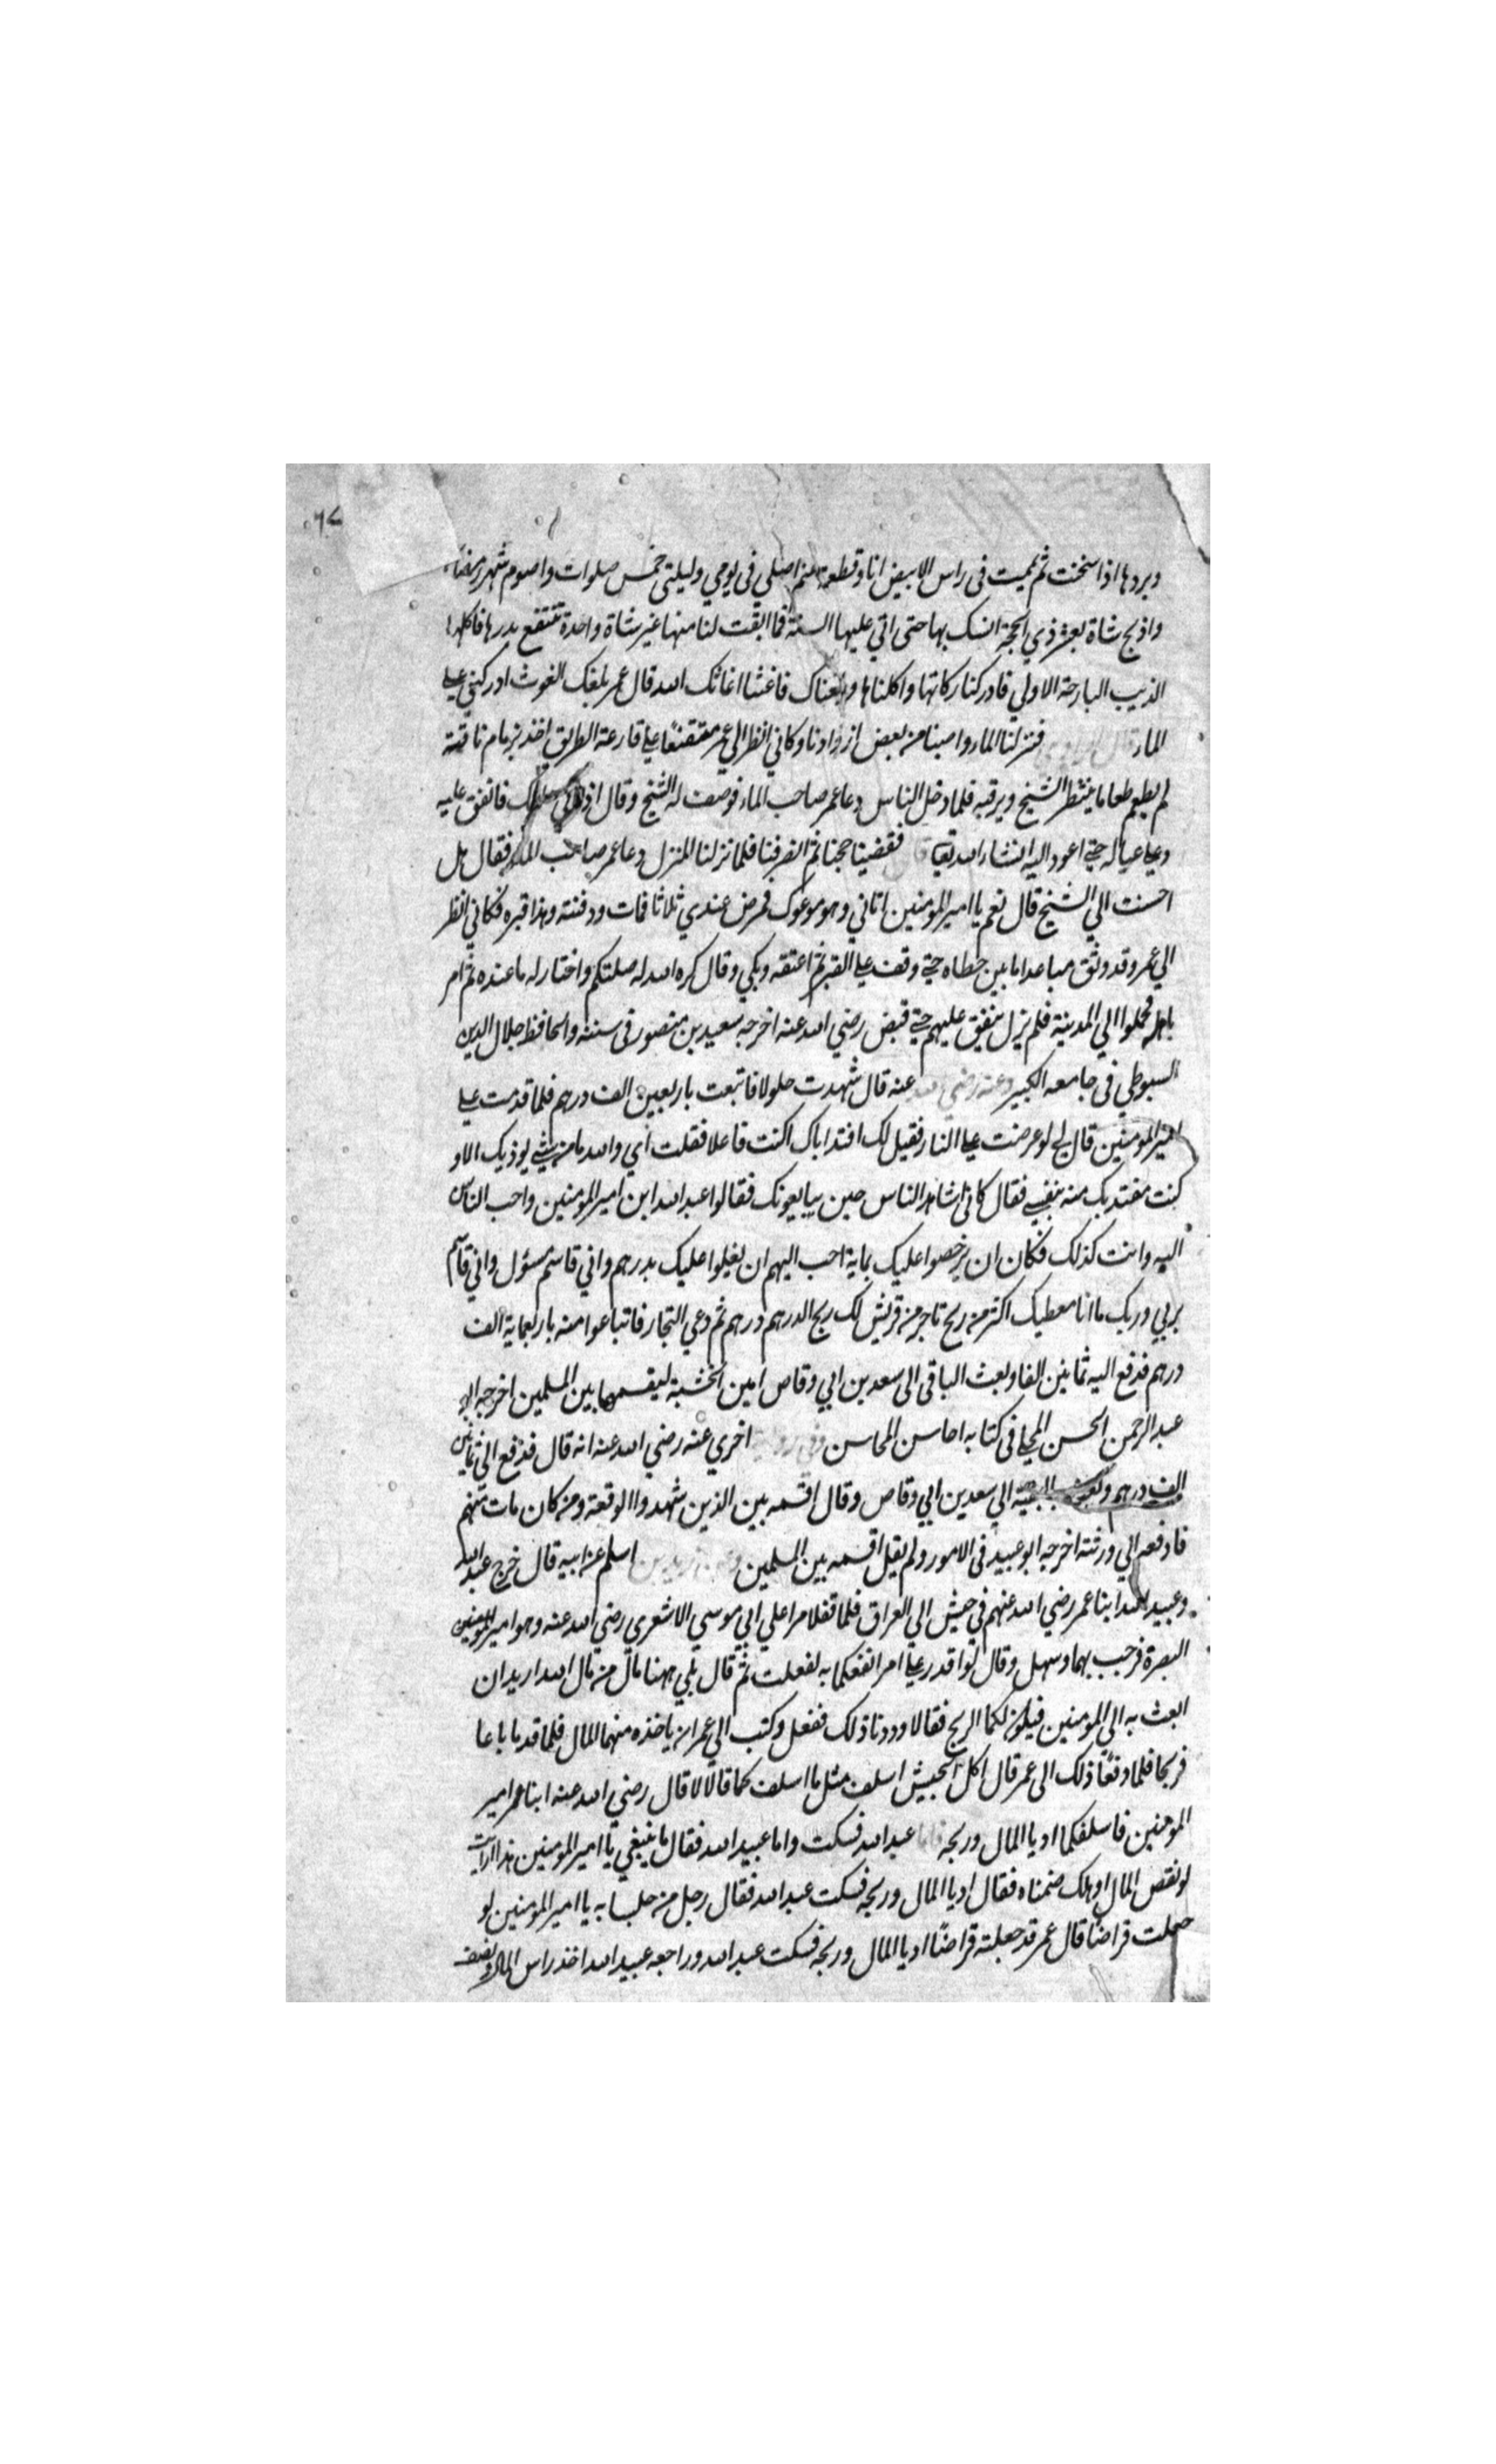 ٠٦٧
وبردها اذا سخنت ثم يممت في راس الابيض انا وقطعة غنم اصلي في يومي وليلتي خمس صلوات واصوم شهر رمضان
واذبح شاة بعشر ذي الحجة انسك بها حتى اتي عليها السنة فما ابقت لنا منها غير شاة واحدة ننتفع بدرها فاكلها
الذيب البارحة الاولي فادركنا زكاتها واكلناها وبلغناك فاغثنا اغاثك الله قال عمر بلغك الغوث ادركني علي
الماء قال الراوي فنزلنا الماء واصبنا من بعض ازوادنا وكاني انظر الي عمر متقنعًا علي قارعة الطريق اخذ بزمام ناقته
لم يطعم طعاما ينتظر الشيخ ويرقبه فلما دخل الناس دعا عمر صاحب الماء فوصف له الشيخ وقال اذا فانفق عليه
وعلي عياله حتي اعود اليه انشاء الله تعالي قال فقضينا حجنا ثم انصرفنا فلما نزلنا المنزل دعا عمر صاحب الماء فقال هل
احسنت الي الشيخ قال نعم يا امير المومنين اتاني وهو موعوك فمرض عندي ثلاثا فمات ودفنته وهذا قبره فكاني انظر
الي عمر وقد وثق مباعدا ما بين خطاه حتي وقف علي القبر ثم اعتقه وبكي وقال كره الله له صلتكم واختار له ما عنده ثم امر
باهله فحملوا الي المدينة فلم يزل ينفق عليهم حتي قبض رضي الله عنه اخرجه سعيد بن منصور في سننه والحافظ جلال الدين
السيوطي في جامعه الكبير وعنه رضي الله عنه قال شهدت جلولا فاتبعت باربعين الف درهم فلما قدمت علي
امير المومنين قال لي لو عرضت علي النار فقيل لك افتد اباك اكنت فاعلا فقلت اي والله ما من شي يوذيك الا و
كنت مفتديك منه بنفسي فقال كاني اشاهد الناس حين يبايعونك فقالوا عبد الله ابن امير المومنين واحب الناس
اليه وانت كذلك فكان ان يرخصوا عليك بماية احب اليهم ان يغلوا عليك بدرهم واني قاسم مسؤل واني قاسم
بربي وربك ما انا معطيك اكثر من ربح تاجر من قريش لك ربح الدرهم درهم ثم دعي التجار فاتباعوا منه باربعماية الف
درهم فدفع اليه ثمانين الفا وبعث الباقي الى سعد بن ابي وقاص امين الخشبة ليقسمها بين المسلمين اخرجه ابو
عبد الرحمن الحسن المحلي في كتابه احاسن المحاسن وفي رواية اخري عنه رضي الله عنه انه قال فدفع الي ثمانين
الف درهم وبعث بالبقية الي سعد بن ابي وقاص وقال اقسمه بين الذين شهدوا الوقعة ومن كان مات منهم
فادفعه الي ورثته اخرجه ابو عبيد في الامور ولم يقل اقسمه بين المسلمين وعن زيد بن اسلم عن ابيه قال خرج عبد الله
وعبيد الله ابنا عمر رضي الله عنهم في جيش الي العراق فلما قفلا مرا علي ابي موسي الاشعري رضي الله عنه وهو امير المومنين
البصرة فرحب بهما وسهل وقال لو اقدر علي امر انفعكما به لفعلت ثم قال بلي ههنا مال من مال الله اريد ان
ابعث به الي المومنين فيكون لكما الربح فقالا وددنا ذلك ففعل وكتب الي عمر ان ياخذه منهما المال فلما قدما باعا
فربحا فلما دفعًا ذلك الى عمر قال اكل الجيش اسلف مثل ما اسلفكما قالا لا قال رضي الله عنه ابنا عمر امير
المومنين فاسلفكما اديا المال وربحه فاما عبد الله فسكت واما عبيد الله فقال ما ينبغي يا امير المومنين هذا ارايت
لو نقص المال او هلك ضمناه فقال اديا المال وربحه فسكت عبد الله فقال رجل من جلسابه يا امير المومنين لو
جعلت قراضًا قال عمر قد جعلته قراضًا اديا المال وربحه فسكت عبد الله وراجعه عبيد الله اخذ راس المال ونصف